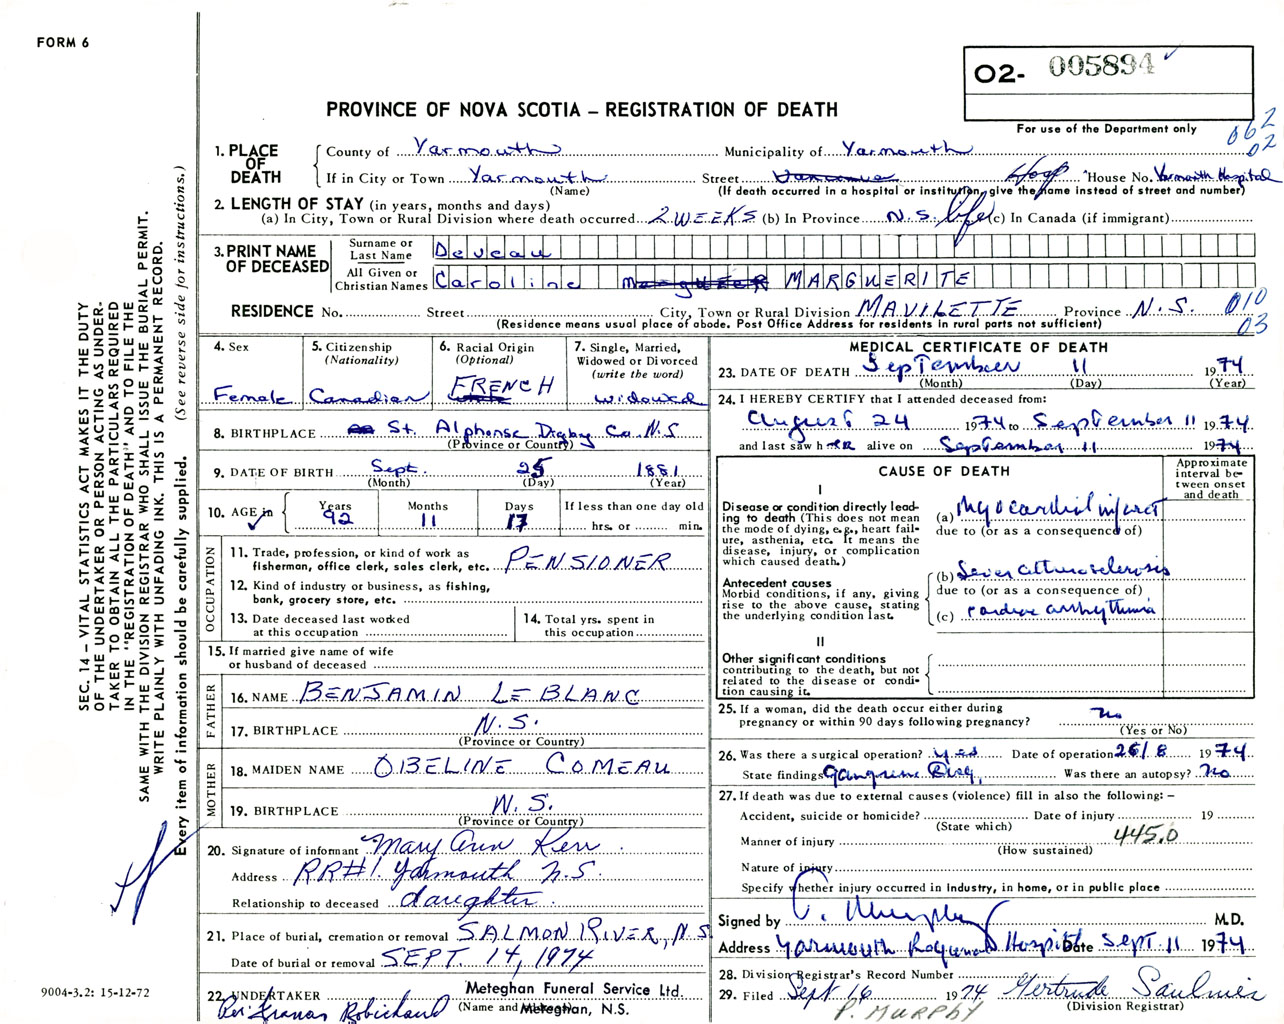 FORM 6
O2- 005894
PROVINCE OF NOVA SCOTIA – REGISTRATION OF DEATH
For use of the Department only
062
02
SEC. 14 – VITAL STATISTICS ACT MAKES IT THE DUTY
OF THE UNDERTAKER OR PERSON ACTING AS UNDER-
TAKER TO OBTAIN ALL THE PARTICULARS REQUIRED
IN THE "REGISTRATION OF DEATH" AND TO FILE THE
SAME WITH THE DIVISION REGISTRAR WHO SHALL ISSUE THE BURIAL PERMIT.
WRITE PLAINLY WITH UNFADING INK. THIS IS A PERMANENT RECORD.
Every item of information should be carefully supplied. (See reverse side for instructions.)
1. PLACE OF DEATH
County of Yarmouth Municipality of Yarmouth
If in City or Town Yarmouth Street Hosp House No. Yarmouth Hospital
(Name) (If death occurred in a hospital or institution, give the name instead of street and number)
2. LENGTH OF STAY (in years, months and days)
(a) In City, Town or Rural Division where death occurred 2 WEEKS (b) In Province N.S. life (c) In Canada (if immigrant)
3. PRINT NAME OF DECEASED
Surname or Last Name Deveau
All Given or Christian Names Caroline MARGUERITE
RESIDENCE No. Street City, Town or Rural Division MAVILETTE Province N.S. 010
03
(Residence means usual place of abode. Post Office Address for residents in rural parts not sufficient)
4. Sex
Female
5. Citizenship
(Nationality)
Canadian
6. Racial Origin
(Optional)
FRENCH
7. Single, Married,
Widowed or Divorced
(write the word)
widowed
8. BIRTHPLACE St. Alphonse Digby Co. N.S
(Province or Country)
9. DATE OF BIRTH Sept. 25 1881
(Month) (Day) (Year)
10. AGE in Years 92 Months 11 Days 17 If less than one day old
hrs. or min.
OCCUPATION
11. Trade, profession, or kind of work as
fisherman, office clerk, sales clerk, etc. PENSIONER
12. Kind of industry or business, as fishing,
bank, grocery store, etc.
13. Date deceased last worked
at this occupation
14. Total yrs. spent in
this occupation
15. If married give name of wife
or husband of deceased
FATHER
16. NAME BENJAMIN LE BLANC
17. BIRTHPLACE N.S.
(Province or Country)
MOTHER
18. MAIDEN NAME OBELINE COMEAU
19. BIRTHPLACE N.S.
(Province or Country)
20. Signature of informant Mary Ann Kerr
Address RR#1 Yarmouth N.S.
Relationship to deceased daughter
21. Place of burial, cremation or removal SALMON RIVER, N.S
Date of burial or removal SEPT. 14, 1974
22. UNDERTAKER Meteghan Funeral Service Ltd.
(Name and Meteghan, N.S.
Per Francis Robichaud
9004-3.2: 15-12-72
MEDICAL CERTIFICATE OF DEATH
23. DATE OF DEATH September 11 1974
(Month) (Day) (Year)
24. I HEREBY CERTIFY that I attended deceased from:
August 24 1974 to September 11 1974
and last saw her alive on September 11 1974
CAUSE OF DEATH
Approximate
interval be-
tween onset
and death
I
Disease or condition directly lead-
ing to death (This does not mean
the mode of dying, e.g., heart fail-
ure, asthenia, etc. It means the
disease, injury, or complication
which caused death.)
(a) Myocardial infarct
due to (or as a consequence of)
Antecedent causes
Morbid conditions, if any, giving
rise to the above cause, stating
the underlying condition last.
(b) Sever atherosclerosis
due to (or as a consequence of)
(c) cardiac arrhythmia
II
Other significant conditions
contributing to the death, but not
related to the disease or condi-
tion causing it.
25. If a woman, did the death occur either during
pregnancy or within 90 days following pregnancy? no
(Yes or No)
26. Was there a surgical operation? yes Date of operation 26/8 1974
State findings Gangrene Was there an autopsy? No
27. If death was due to external causes (violence) fill in also the following: –
Accident, suicide or homicide? Date of injury 19
(State which)
Manner of injury 445.0
(How sustained)
Nature of injury
Specify whether injury occurred in Industry, in home, or in public place
Signed by P. Murphy M.D.
Address Yarmouth Regional Hospital Date Sept 11 1974
28. Division Registrar's Record Number
29. Filed Sept 16 1974 Gertrude Saulnier
(Division Registrar)
P. MURPHY